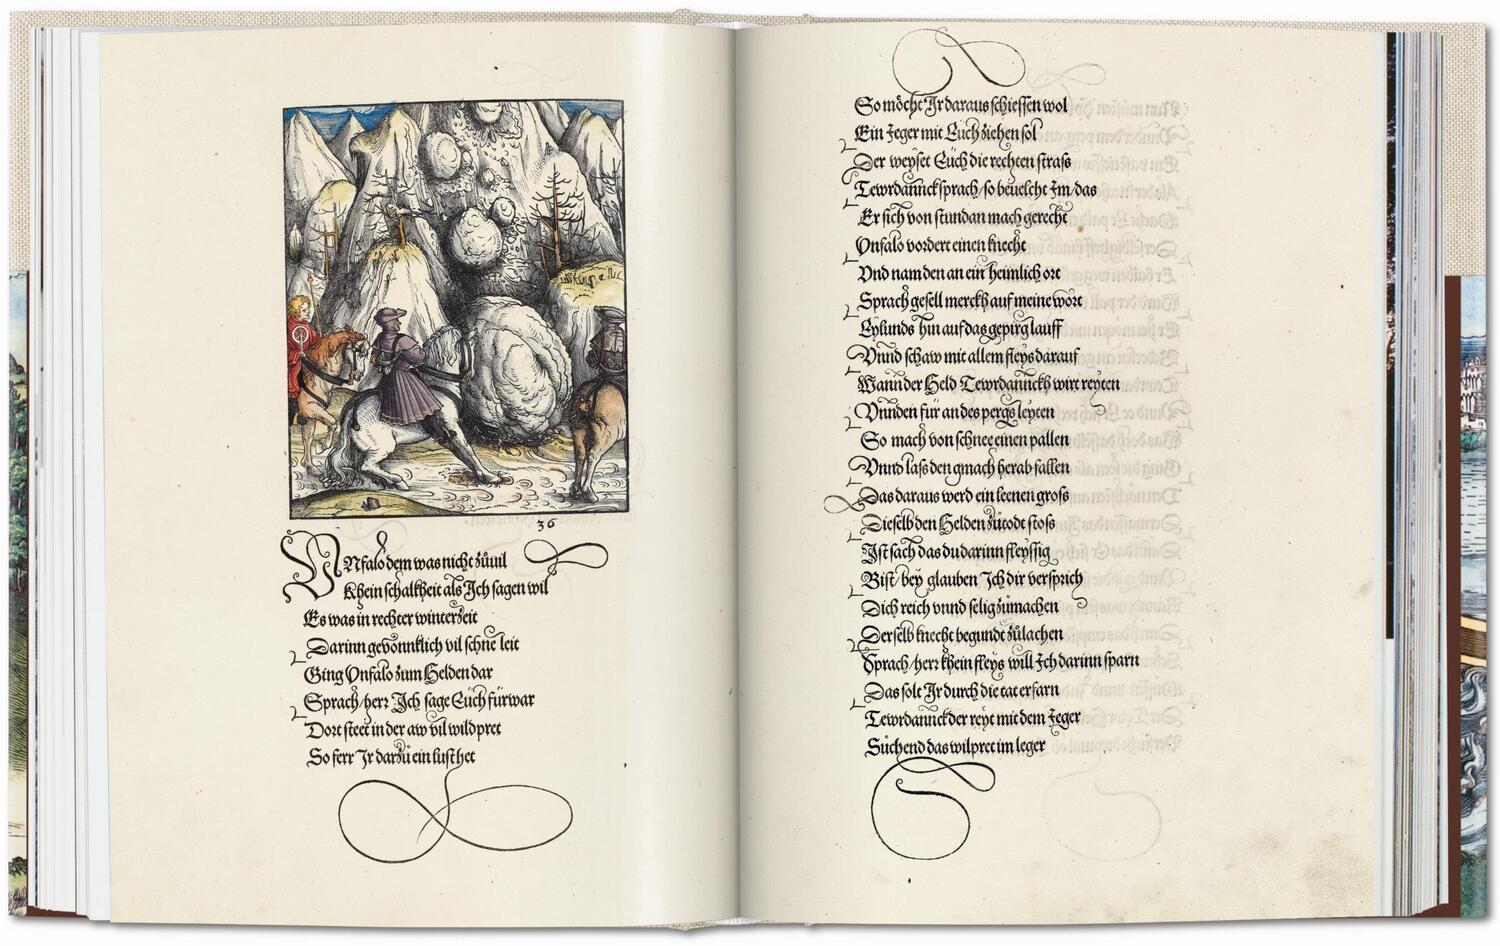 36
UNfalo dem was nicht zůuil
Khein schalkheit als Ich sagen wil
Es was in rechter winterzeit
Darinn gewonnklich vil schne leit
Ging Vnfalo zum Helden dar
Sprach / herr Ich sage Euch fürwar
Dort steet in der aw vil wildpret
So ferr Ir darzů ein lust het
So möcht Ir daraus schiessen wol
Ein Jeger mit Euch ziehen sol
Der weyset Euch die rechten strass
Tewrdannck sprach / so beuelcht Im / das
Er sich von stundan mach gerecht
Vnfalo vordert einen knecht
Vnd nam den an ein heimlich ort
Sprach gesell merckh auf meine wort
Eylunds hin auf das gepirg lauff
Vnnd schaw mit allem fleys darauf
Wann der Held Tewrdannckh wirt reyten
Vnnden für an des pergs leyten
So mach von schnee einen pallen
Vnnd lass den gmach herab fallen
Das daraus werd ein leenen gross
Dieselb den Helden zůtodt stoss
Ist sach das du darinn fleyssig
Bist / bey glauben Ich dir versprich
Dich reich vnnd selig zůmachen
Derselb knecht begundt zůlachen
Sprach / herr khein fleys will Ich darinn sparn
Das solt Ir durch die tat erfarn
Tewrdannck der reyt mit dem Jeger
Sůchend das wilpret im leger